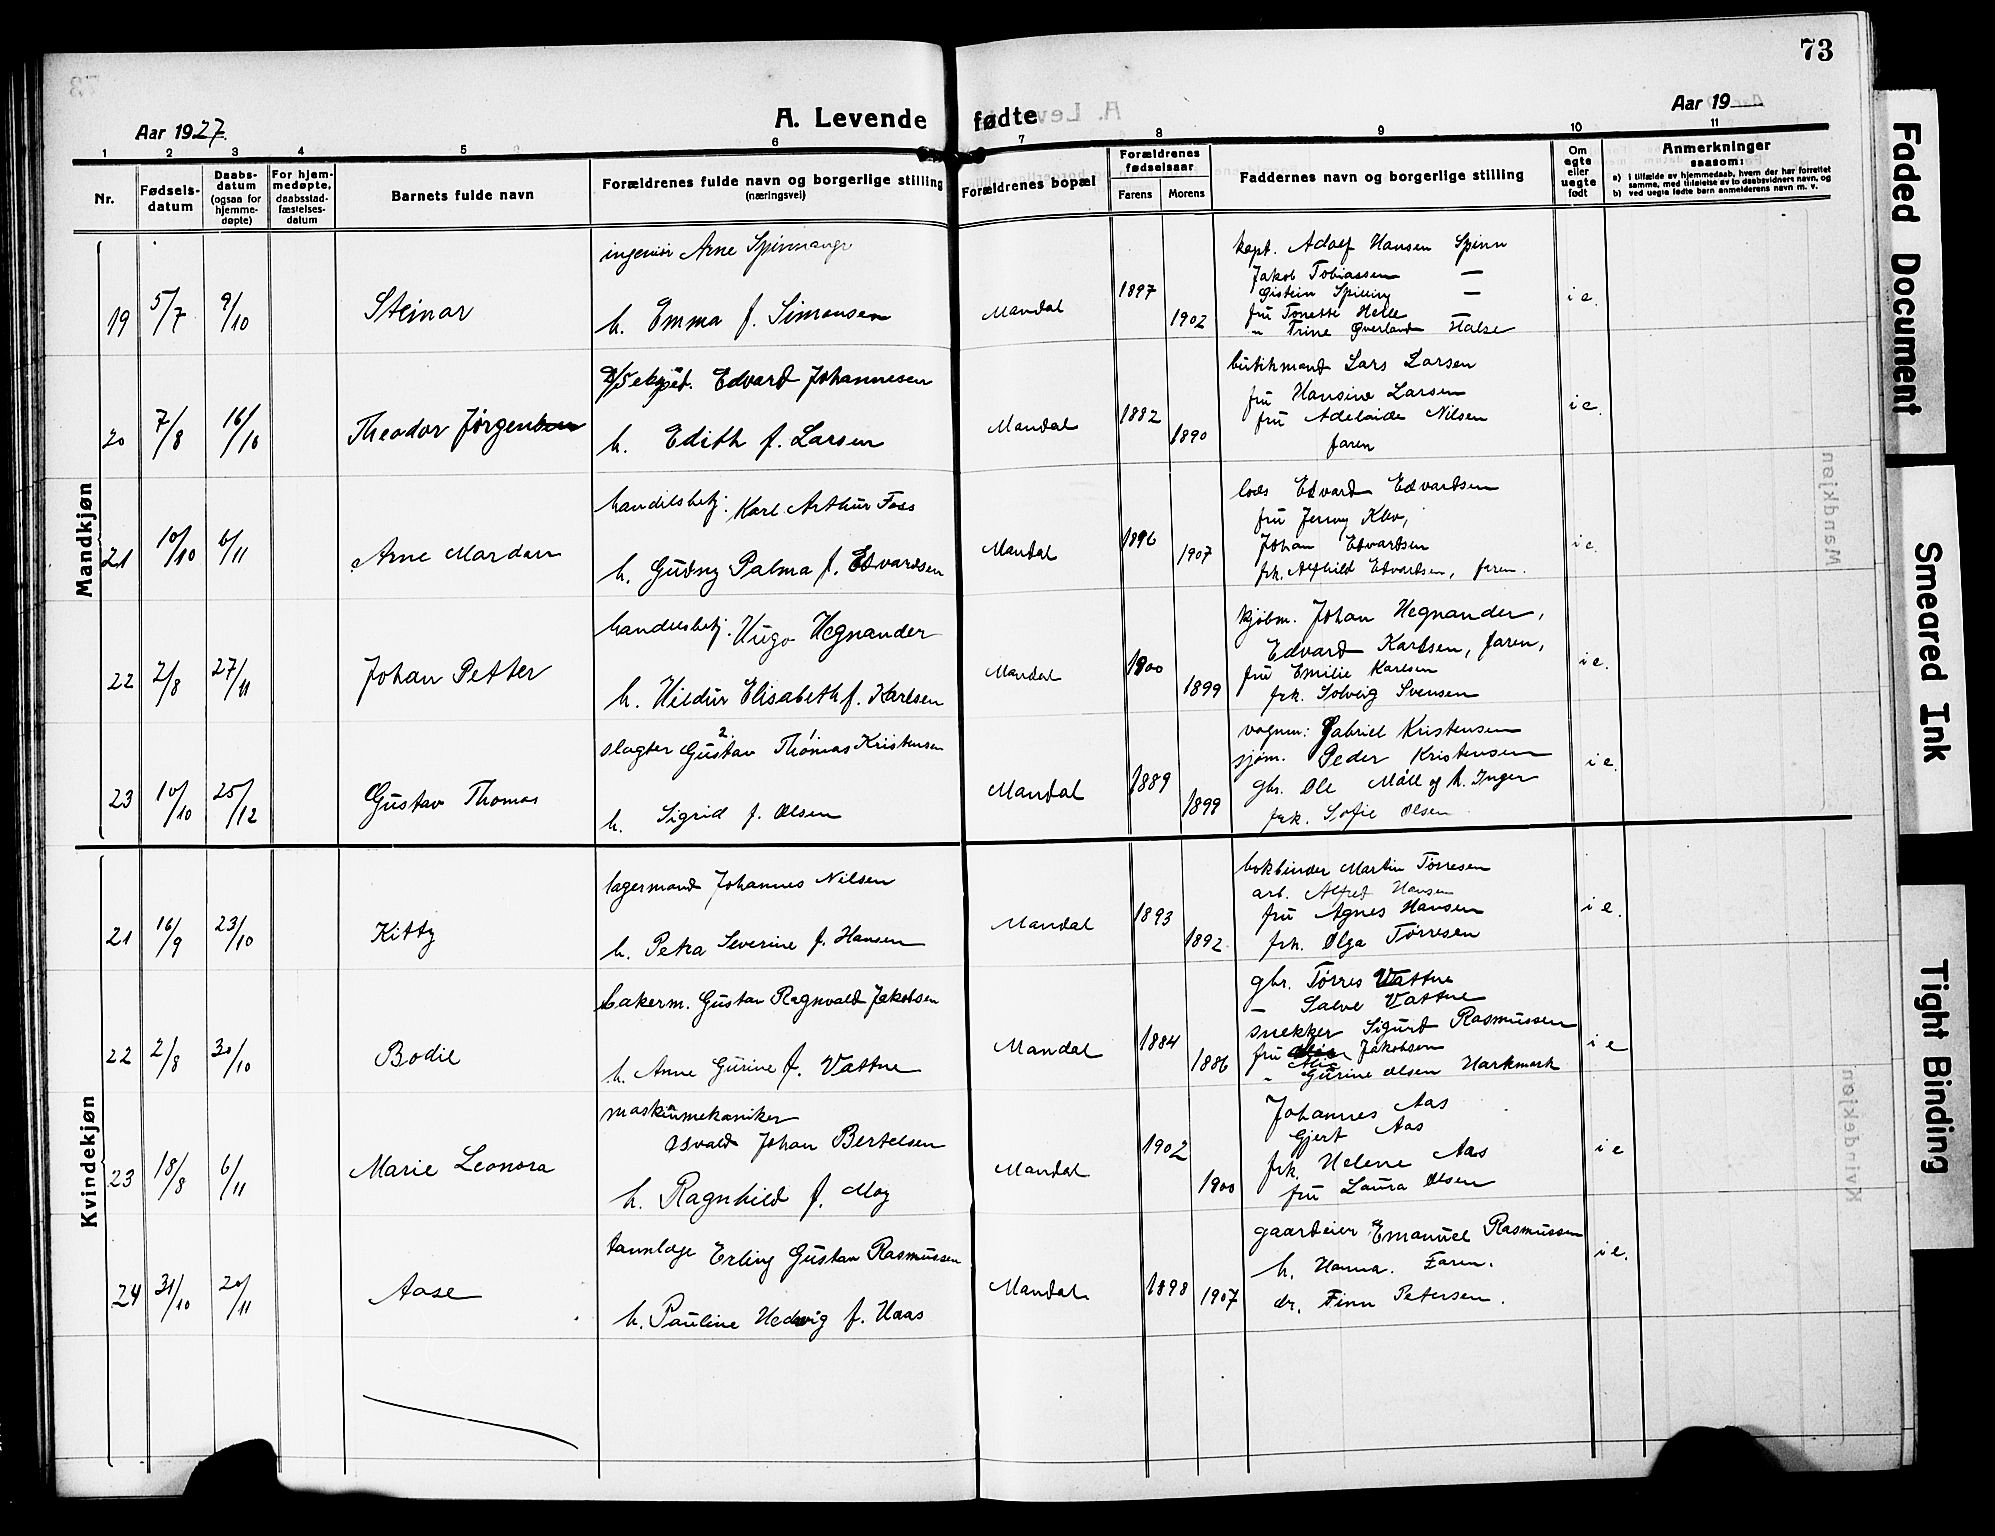 73
Aar 1927.
A. Levende fødte
Aar 19
1 2 3 4 5 6 7 8 9 10 11
Nr.
Fødsels-datum
Daabs-datum (ogsaa for hjemme-døpte)
For hjem-medøpte, daabsstad-fæstelses-datum
Barnets fulde navn
Forældrenes fulde navn og borgerlige stilling (næringsvei)
Forældrenes bopæl
Forældrenes fødselsaar
Farens Morens
Faddernes navn og borgerlige stilling
Om egte eller uegte født
Anmerkninger saasom:
a) i tilfælde av hjemmedaab, hvem der har forrettet samme, med tilføielse av to daabsvidners navn, og
b) ved uegte fødte barn anmelderens navn m. v.
Mandkjøn
19 5/7 9/10 Steinar
ingeniør Arne Spinnangr
h. Emma f. Simonsen
Mandal 1897 1902
kapt. Adolf Hansen Spinn
Jakob Tobiassen —
Øistein Spilling —
fru Tonette Helle
" Trine Øverland Halse
i e.
20 7/8 16/10 Theodor Jørgen
Edvard Johannesen
h. Edith f. Larsen
Mandal 1882 1890
butikmand Lars Larsen
fru Hansine Larsen
fru Adelaide Nilsen
faren
i e.
21 10/10 6/11 Arne Mardan
handelsbetj. Karl Arthur Foss
h. Gudny Palma f. Edvardsen
Mandal 1896 1907
lods Edvard Edvardsen
fru Jenny Klev,
Johan Edvardsen
frk. Alfhild Edvardsen, faren.
i e.
22 2/8 27/11 Johan Petter
handelsbetj. Hugo Hegnander
h. Hildur Elisabeth f. Karlsen
Mandal 1900 1899
kjøbm. Johan Hegnander,
Edvard Karlsen, faren,
fru Emilie Karlsen
frk. Solveig Svensen
i e.
23 10/10 25/12 Gustav Thomas
slagter Gustav Thomas Kristensen
2. 1
h. Sigrid f. Olsen
Mandal 1889 1899
vognm. Gabriel Kristensen
sjøm. Peder Kristensen
gbr. Ole Møll og h. Inger
frk. Sofie Olsen
i e.
Kvindekjøn
21 16/9 23/10 Kitty
lagermand Johannes Nilsen
h. Petra Severine f. Hansen
Mandal 1893 1892
bokbinder Martin Tørresen
arb. Alfred Hansen
fru Agnes Hansen
frk. Olga Tørresen
i e.
22 2/8 30/10 Bodil
bakerm. Gustav Ragnvald Jakobsen
h. Anne Gurine f. Vattne
Mandal 1884 1886
gbr. Tørres Vattne
— Salve Vattne
snekker Sigurd Rasmussen
fru Jakobsen
" Gurine Olsen Harkmark
i e
23 18/8 6/11 Marie Leonora
maskinmekaniker
Osvald Johan Bertelsen
h. Ragnhild f. Moy
Mandal 1902 1900
Johannes Aas
Gjert Aas
frk. Helene Aas
fru Laura Olsen
i e
24 31/10 20/11 Aase
tannlæge Erling Gustav Rasmussen
h. Pauline Hedvig f. Haas
Mandal 1898 1907
gaardeier Emanuel Rasmussen
h. Hanna. Faren.
dr. Finn Petersen.
i e.
Faded Document
Smeared Ink
Tight Binding